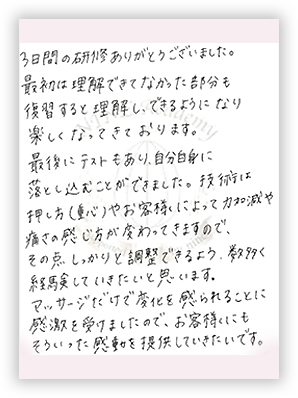 3日間の研修ありがとうございました。
最初は理解できてなかった部分も
復習すると理解し、できるようになり
楽しくなってきております。
最後にテストもあり、自分自身に
落とし込むことができました。技術は
押し方(重心)やお客様によって力加減や
痛さの感じ方が変わってきますので、
その点しっかりと調整できるよう、数多く
経験していきたいと思います。
マッサージだけで変化を感られることに
感激を受けましたので、お客様にも
そういった感動を提供していきたいです。